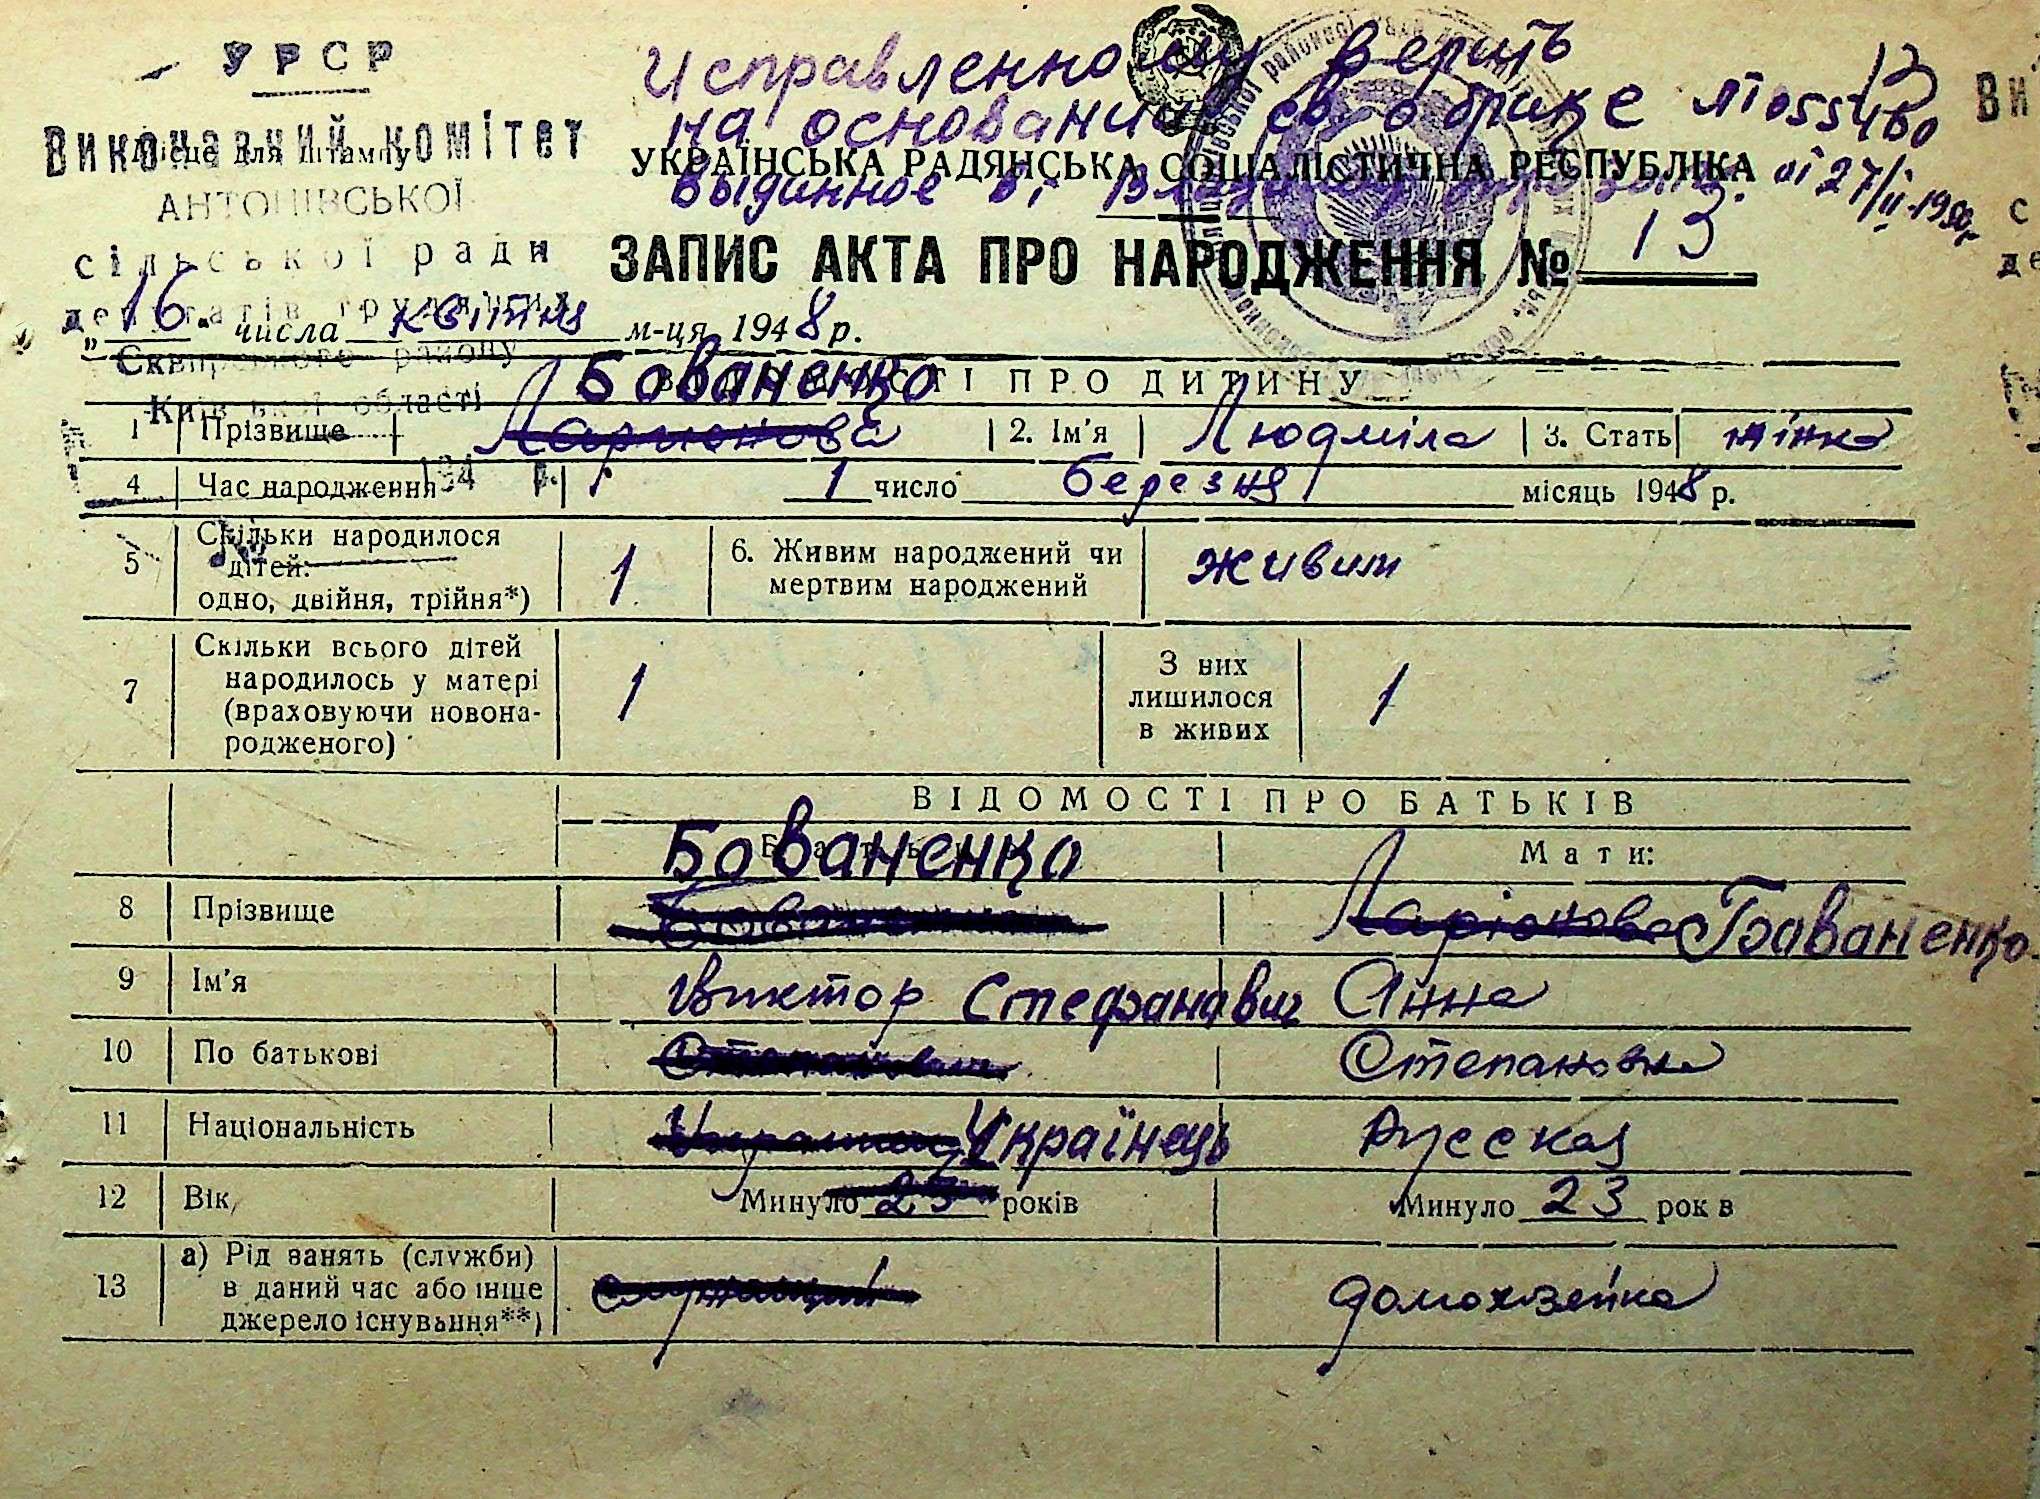 УРСР
Виконавчий комітет
Місце для штампу
АНТОНІВСЬКОЇ
сільської ради
депутатів трудящих
Сквирського району
Київської області
194 р.
Исправленному верить
на основании св. о браке № 055460
выданное от 27/II-1950г.
13
УКРАЇНСЬКА РАДЯНСЬКА СОЦІАЛІСТИЧНА РЕСПУБЛІКА
ЗАПИС АКТА ПРО НАРОДЖЕННЯ № 13
„16" числа квітня м-ця 1948 р.
ВІДОМОСТІ ПРО ДИТИНУ
Бованенко
1 Прізвище Ларионова 2. Ім'я Людміла 3. Стать жінка
4 Час народження 1 число березня місяць 1948 р.
5 Скільки народилося дітей: одно, двійня, трійня*) 1 6. Живим народжений чи мертвим народжений живим
7 Скільки всього дітей народилось у матері (враховуючи новонародженого) 1 З них лишилося в живих 1
ВІДОМОСТІ ПРО БАТЬКІВ
Батько: Мати:
Бованенко
8 Прізвище Ларіонова Бованенко
9 Ім'я Виктор Стефанавич Анна
10 По батькові Степановна
11 Національність Українець Русская
12 Вік Минуло 23 років Минуло 23 рок в
13 а) Рід занять (служби) в даний час або інше джерело існування**) служащий домохзейка